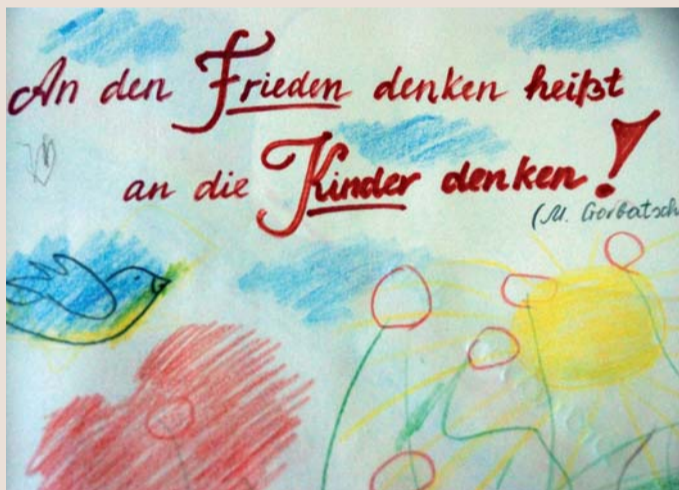 An den Frieden denken heißt
an die Kinder denken!
(M. Gorbatsch